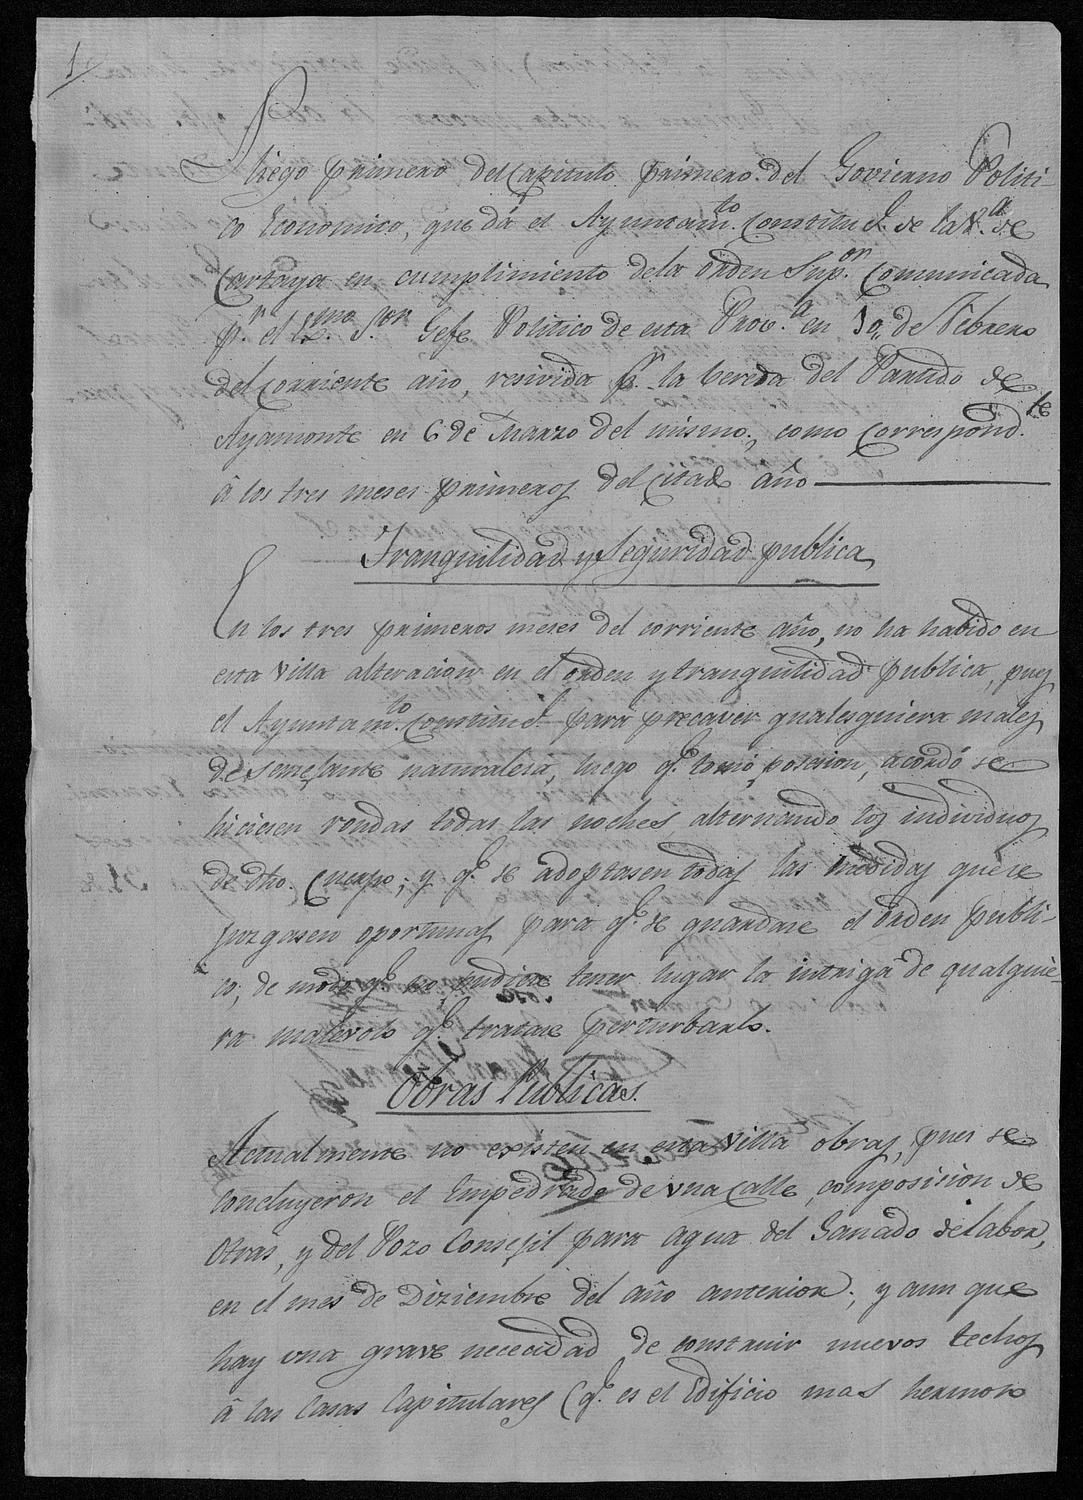 1.
Pliego primero del Capitulo primero del Govierno Politi-
co Economico, que dá el Ayuntam.to Constitu.l de la V.a de
Cartaya en cumplimiento de la orden Sup.or Comunicada
p.r el Ex.mo S.or Gefe Politico de esta Prov.a en 10,, de Febrero
del Corriente año, resivida p.r la bereda del Partido de
Ayamonte en 6 de Marzo del mismo, como Correspond.te
á los tres meses primeros del citado año
Tranquilidad y Seguridad publica
En los tres primeros meses del corriente año, no ha habido en
esta Villa alteracion en el orden y tranquilidad publica, pues
el Ayuntam.to Constitu.l para precaver qualesquiera males
de semejante naturalesa, luego q.e tomó posesion, acordó se
hiciesen rondas todas las noches, alternando los individuos
de dho. Cuerpo; y q.e se adoptasen todas las medidas que se
jusgasen oportunas para q.e se guardase el orden publi-
co, de modo q.e no pudiese tener lugar la intriga de qualquie-
ra malevolo q.e tratase perturbarlo.
Obras Publicas.
Actualmente no existen en esta Villa obras, pues se
concluyeron el Empedrado de una Calle, composision de
Otras, y del Pozo Consejil para agua del Ganado de labor,
en el mes de Diziembre del año anterior; y aun que
hay una grave nececidad de construir nuevos techos
á las Casas Capitulares (q.e es el Edificio mas hermoso